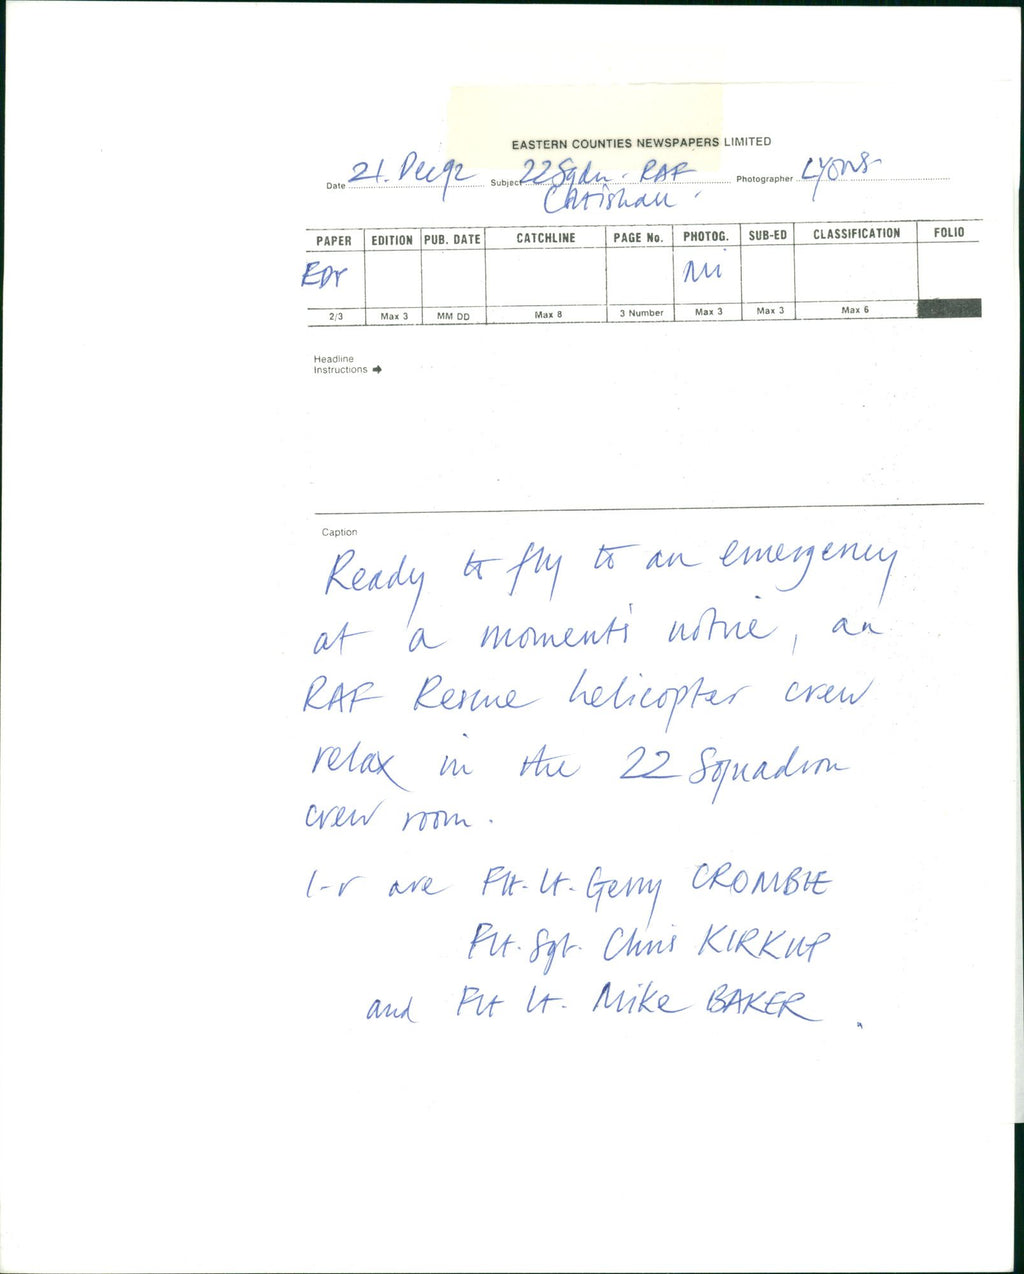 EASTERN COUNTIES NEWSPAPERS LIMITED
Date 21. Dec 92 Subject 22 Sqdn. RAF Photographer LYONS
Coltishall.
PAPER EDITION PUB. DATE CATCHLINE PAGE No. PHOTOG. SUB-ED CLASSIFICATION FOLIO
EDP
2/3 Max 3 MM DD Max 8 3 Number Max 3 Max 3 Max 6
Headline
Instructions
Caption
Ready to fly to an emergency
at a moment's notice, an
RAF Rescue helicopter crew
relax in the 22 Squadron
crew room.
l-r are Flt. Lt. Gerry CROMBIE
Flt. Sgt. Chris KIRKUP
and Flt Lt. Mike BAKER.